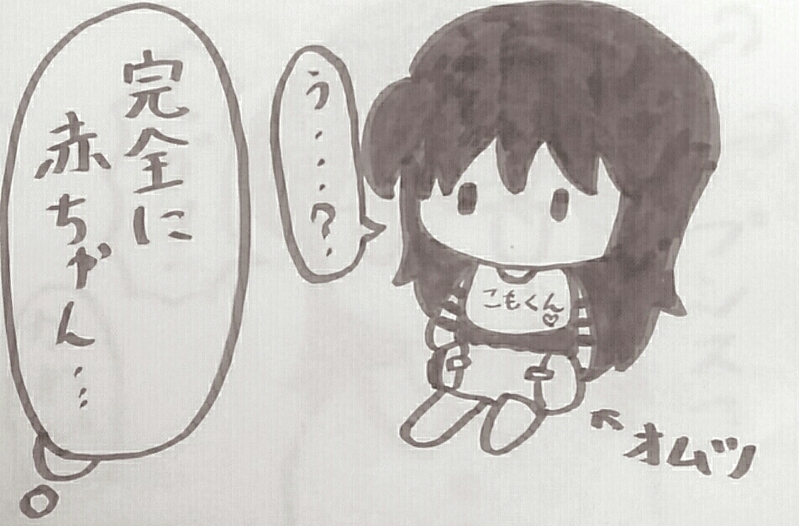 完全に
赤ちゃん…
う・・・?
こもくん♡
←オムツ